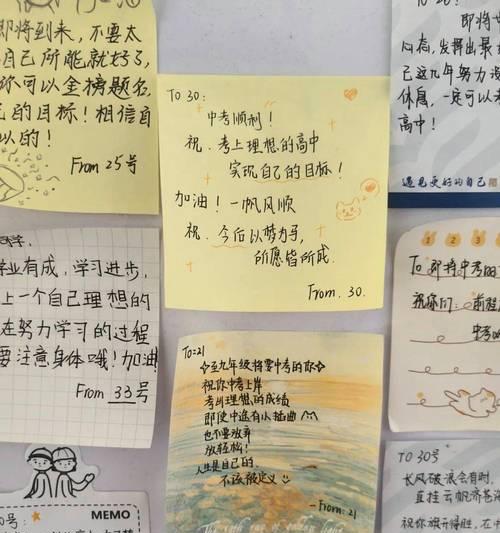 即将到来，不要太
自己所能就好了，
你可以金榜题名，
的目标！相信自
以的！
From 25号
TO 30：
中考顺利！
祝．考上理想的高中
实现自己的目标！
加油！一帆风顺
祝．今后以梦为马，
所愿皆所成．
From．30．
即将中
心态，发挥出最
已这九年努力没
休息，一定可以考
高中！
遇见更好的自己
学业有成，学习进步，
上一个自己理想的
在努力学习的过程
要注意身体哦！加油！
From 33号
TO:21
☆至九年级将要中考的你☆
祝你中考上岸
考出理想的成绩
即使中途有小插曲
也不要放弃
放轻松！
人生是自己的
不该被定义
—From：21
1 2 3
To 即将中考的
祝你们：前程
中考
MEMO
0号：
TO 30号
长风破浪会有时，
直挂云帆济苍海
祝你旗开得胜，在中